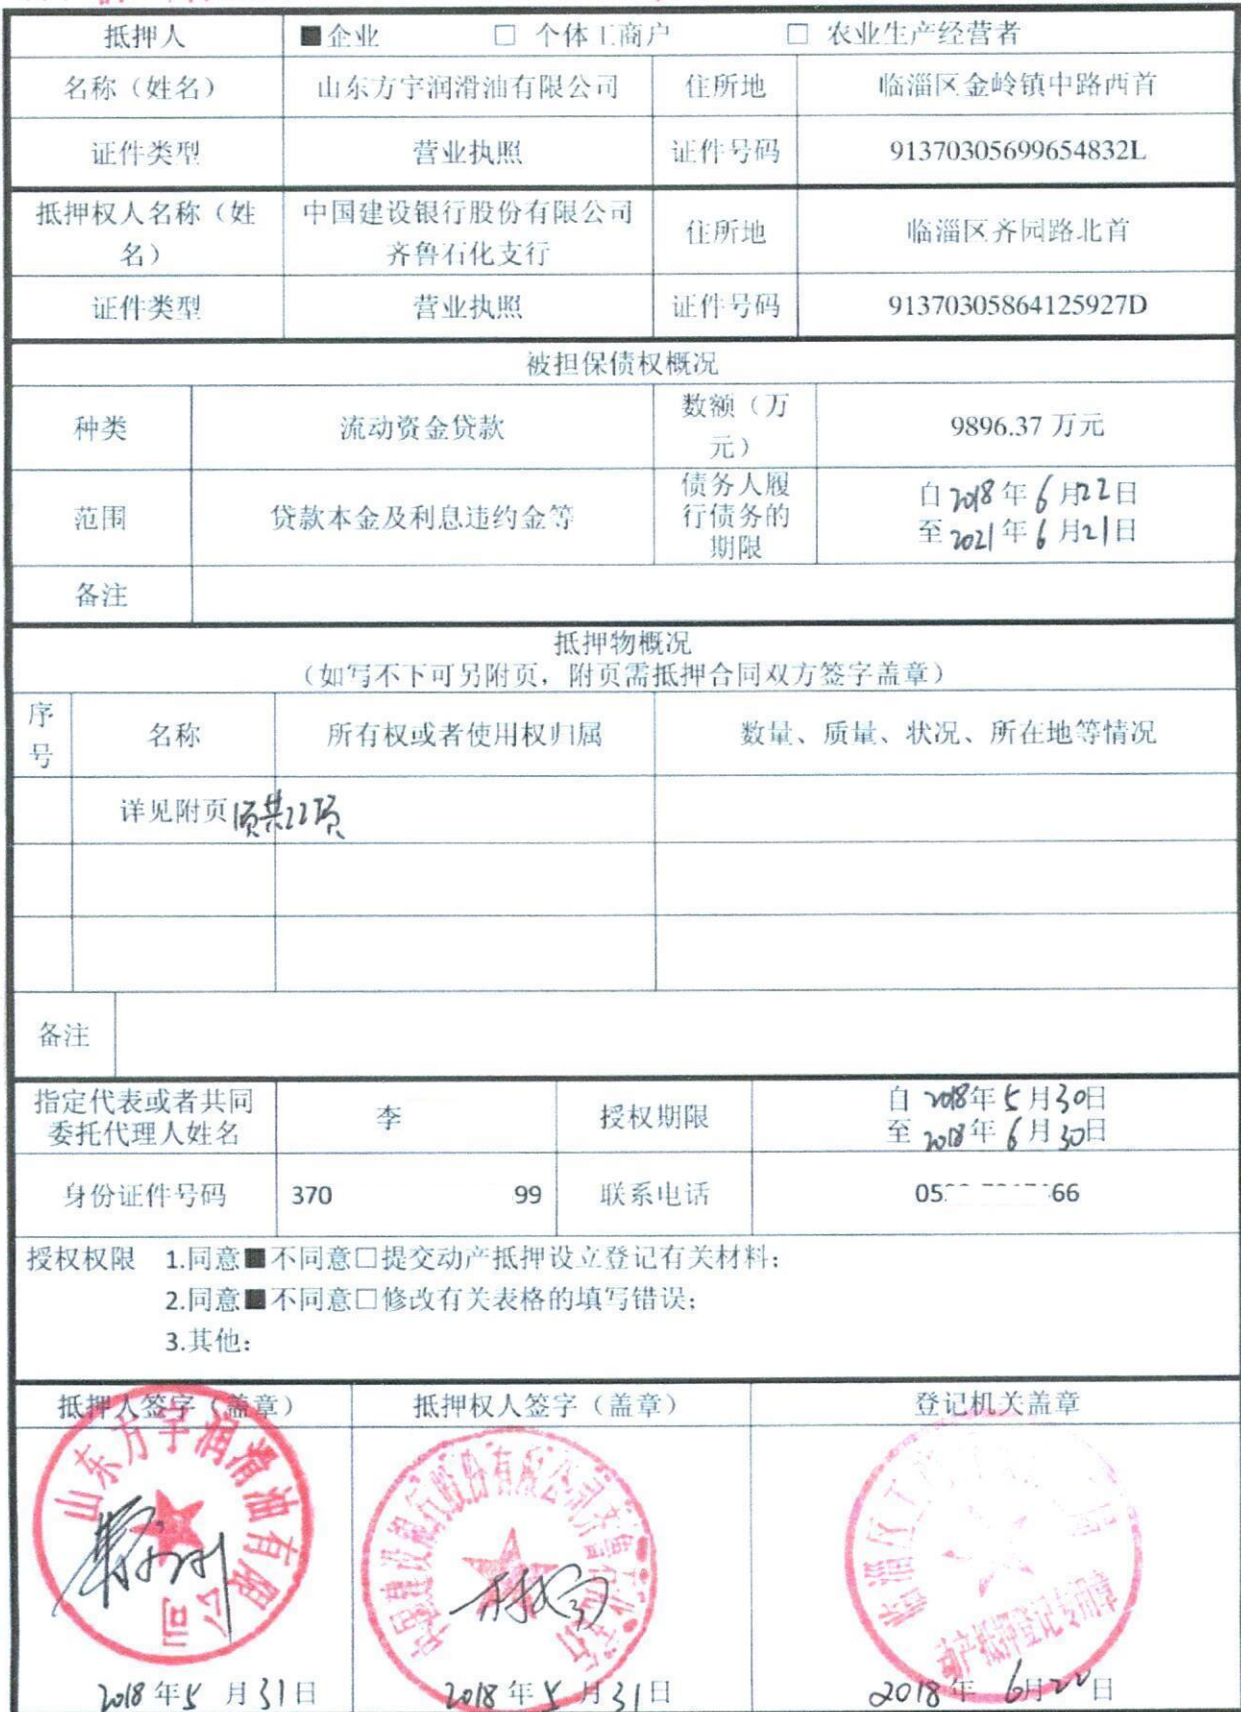 抵押人 ■企业 □ 个体工商户 □ 农业生产经营者
名称（姓名） 山东方宇润滑油有限公司 住所地 临淄区金岭镇中路西首
证件类型 营业执照 证件号码 91370305699654832L
抵押权人名称（姓
名）
中国建设银行股份有限公司
齐鲁石化支行
住所地 临淄区齐园路北首
证件类型 营业执照 证件号码 91370305864125927D
被担保债权概况
种类 流动资金贷款
数额（万
元）
9896.37 万元
范围 贷款本金及利息违约金等
债务人履
行债务的
期限
自2018年6月22日
至2021年6月21日
备注
抵押物概况
（如写不下可另附页，附页需抵押合同双方签字盖章）
序
号
名称 所有权或者使用权归属 数量、质量、状况、所在地等情况
详见附页1页共22项
备注
指定代表或者共同
委托代理人姓名
李 授权期限
自2018年5月30日
至2018年6月30日
身份证件号码 370 99 联系电话 05 66
授权权限 1.同意■不同意□提交动产抵押设立登记有关材料；
2.同意■不同意□修改有关表格的填写错误；
3.其他：
抵押人签字（盖章） 抵押权人签字（盖章） 登记机关盖章
山东方宇润滑油有限公司
中国建设银行股份有限公司齐鲁石化
临淄区
动产抵押登记专用章
2018年5月31日 2018年5月31日 2018年6月22日